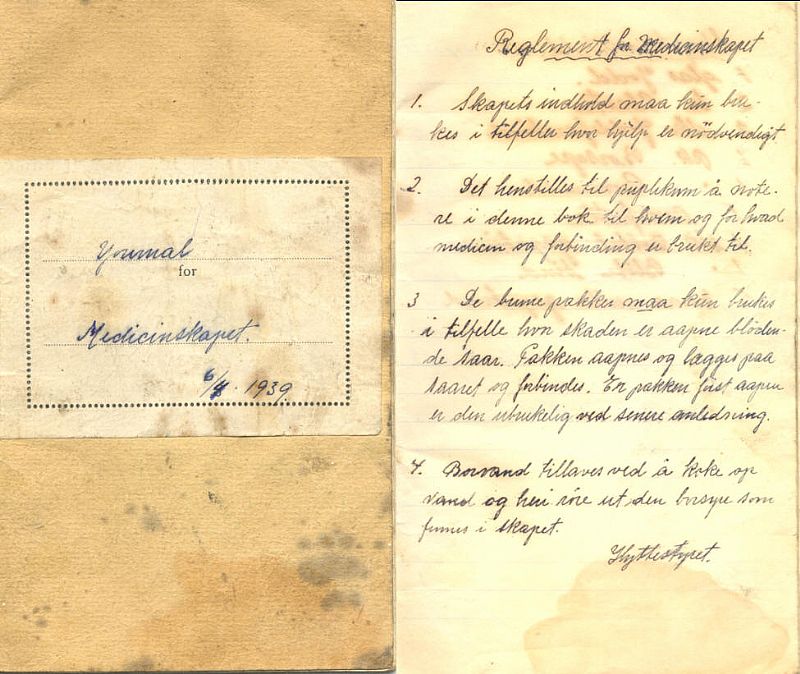 Journal
for
Medicinskapet.
6/4 1939
Reglement for Medicinskapet
1. Skapets indhold maa kun bru-
kes i tilfeller hvor hjelp er nödvendigt
2. Det henstilles til puplikum å note-
re i denne bok til hvem og for hvad
medicin og forbinding er brukt til.
3 De brune pakker maa kun brukes
i tilfelle hvor skaden er aapne blöden-
de saar. Pakken aapnes og lægges paa
saaret og forbindes. Er pakken först aapen
er den ubrukelig ved senere anledning.
4. Borvand tillaves ved å koke op
vand og heri röre ut den borsyre som
finnes i skapet.
Hyttestyret.